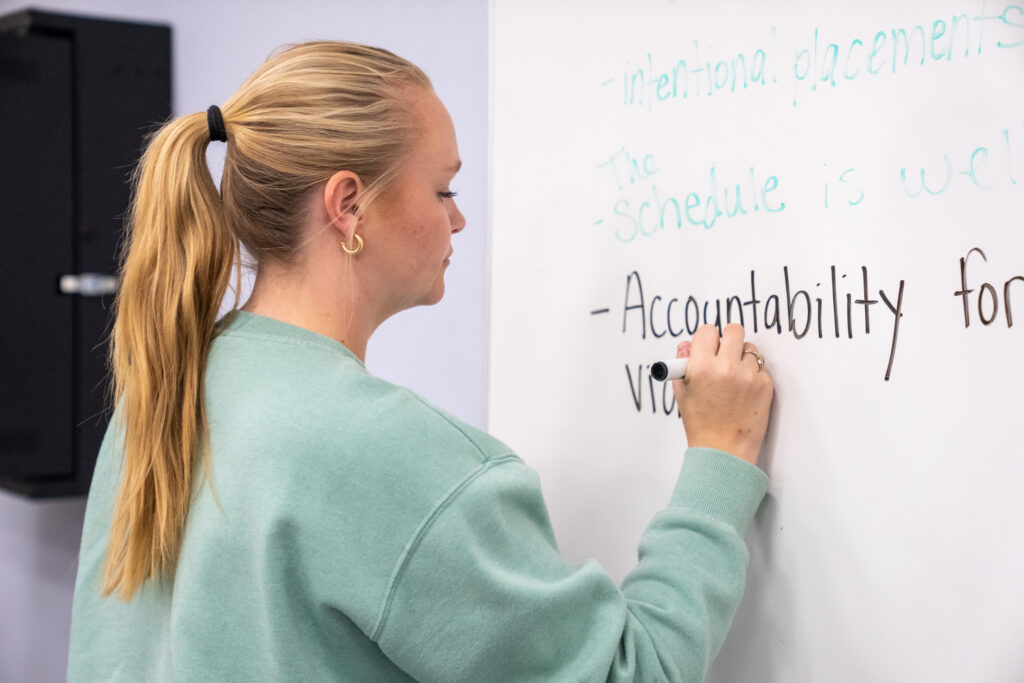 - intentional placements
The
- Schedule is wel
- Accountability for